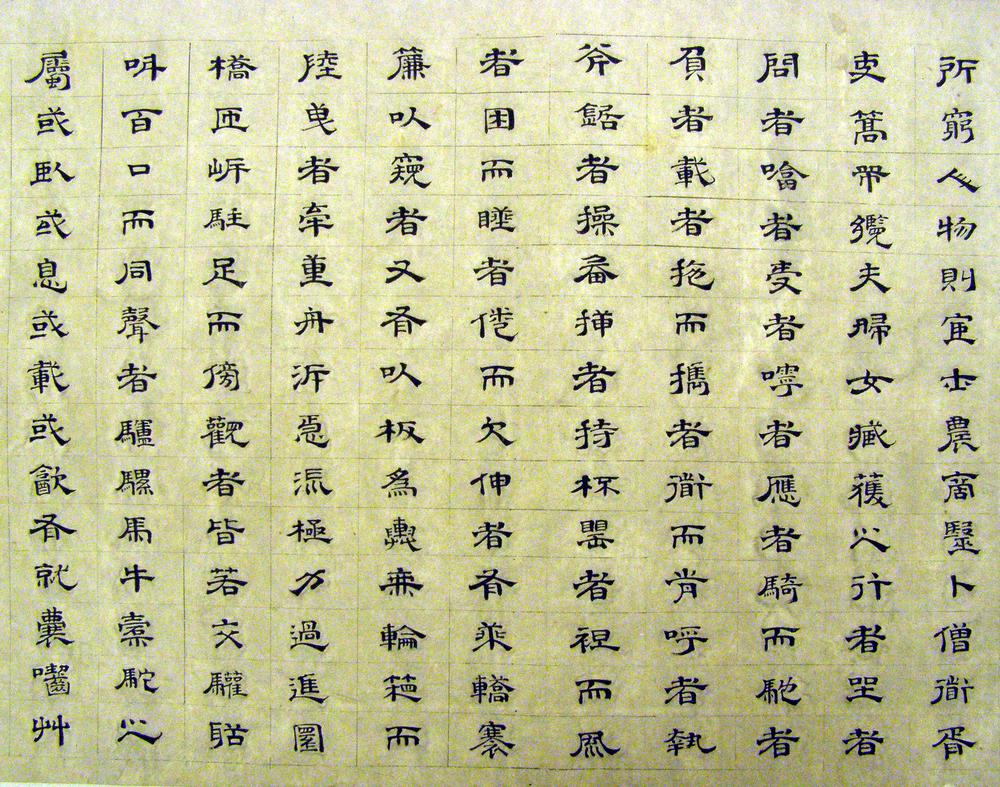 所窮人物則官士農商醫卜僧道胥
吏篙師纜夫婦女臧獲之行者坐者
問者答者受者嘑者應者騎而馳者
負者載者抱而攜者導而前呼者執
斧鋸者操畚鍤者持杯罌者袒而風
者困而睡者倦而欠伸者有乘轎褰
簾以窺者又有以板為輿無輪箱而
陸曳者牽重舟泝急流極力過進圜
橋匝岸駐足而傍觀者皆若交驩聒
叫百口而同聲者驢騾馬牛橐駝之
屬或臥或息或載或飲有就囊齧艸